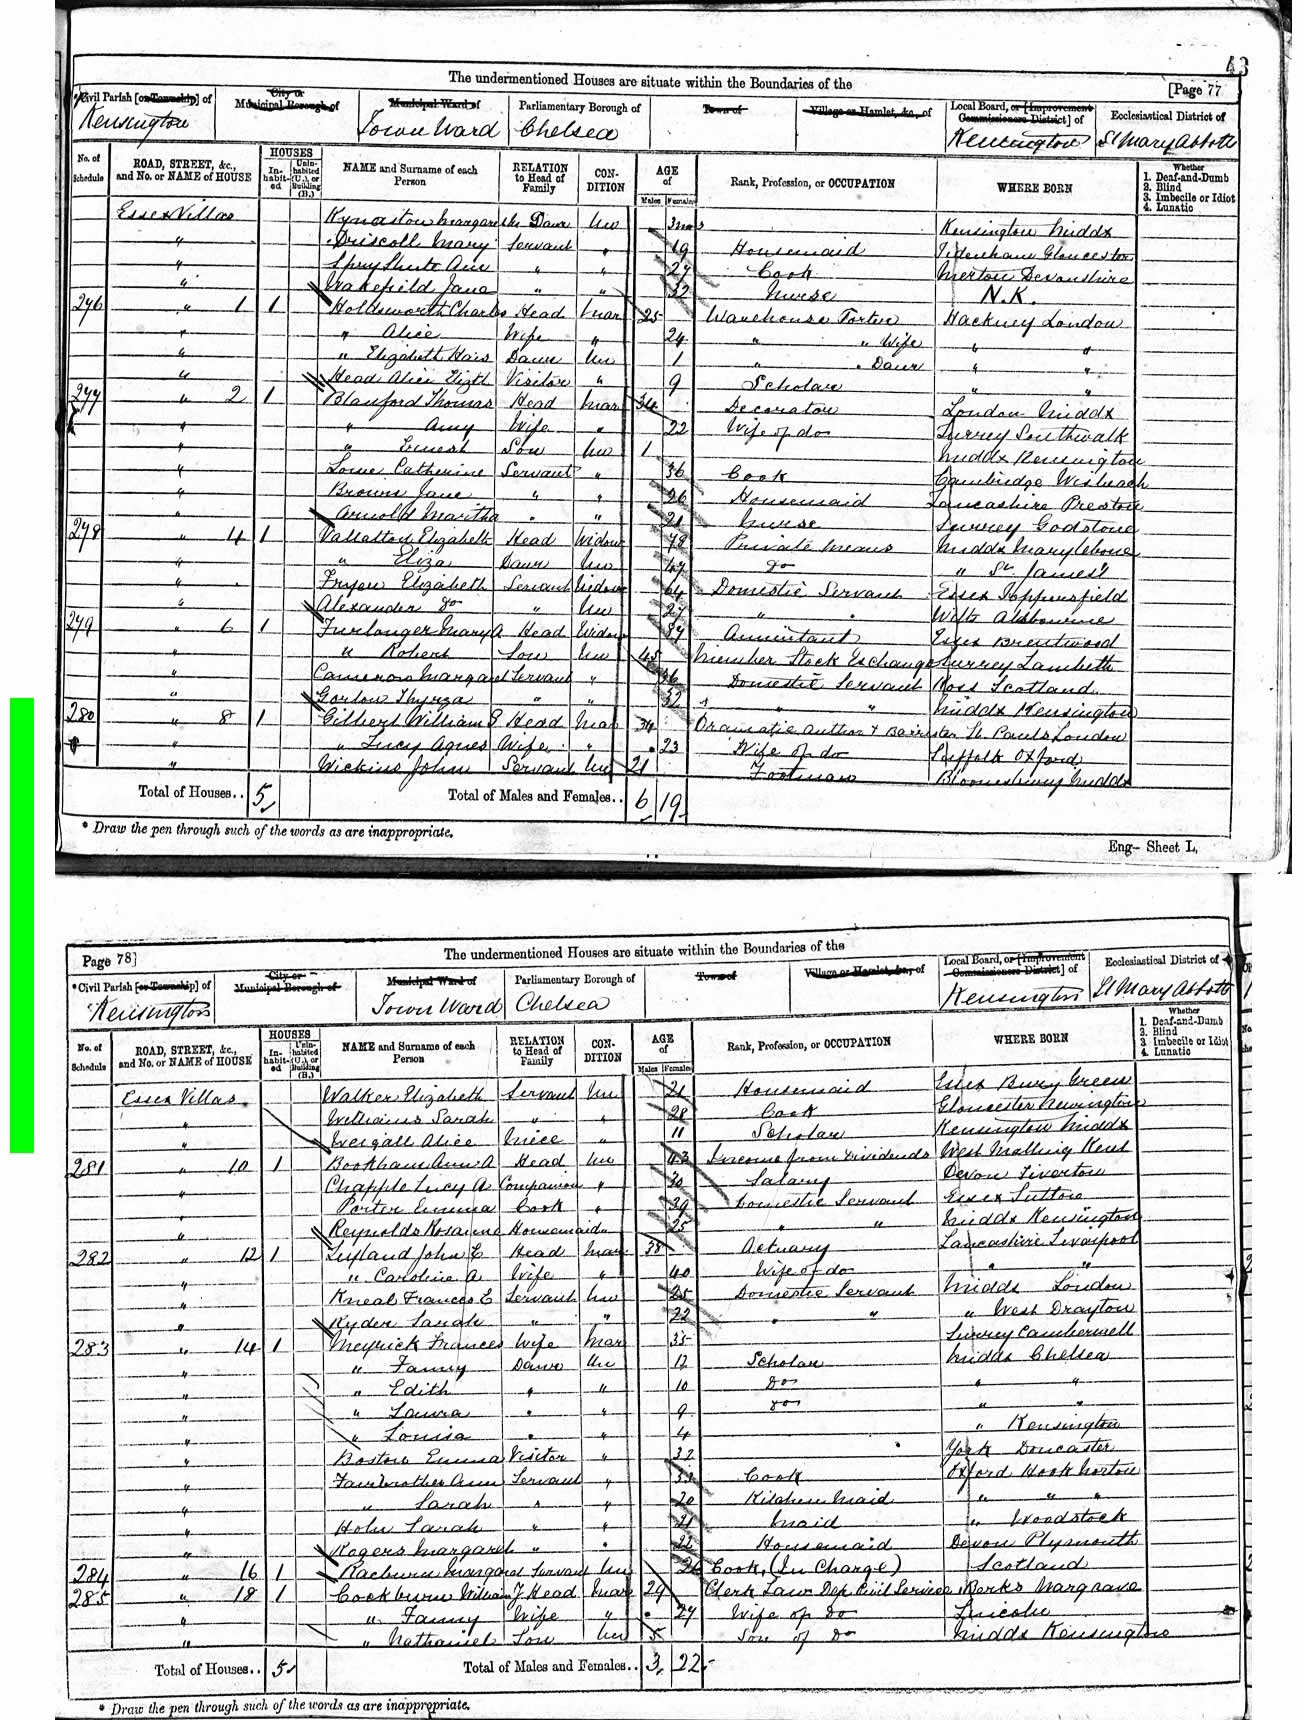 43
The undermentioned Houses are situate within the Boundaries of the
[Page 77
Civil Parish [or Township] of
City or Municipal Borough of
Municipal Ward of
Parliamentary Borough of
Town of
Village or Hamlet, &c., of
Local Board, or [Improvement Commissioners District] of
Ecclesiastical District of
Kensington Town Ward Chelsea Kensington St Mary Abbotts
No. of Schedule
ROAD, STREET, &c., and No. or NAME of HOUSE
HOUSES
In-habit-ed
Unin-habited (U.), or Building (B.)
NAME and Surname of each Person
RELATION to Head of Family
CON-DITION
AGE of
Males Females
Rank, Profession, or OCCUPATION
WHERE BORN
Whether
1. Deaf-and-Dumb
2. Blind
3. Imbecile or Idiot
4. Lunatic
Essex Villas Kynaston Daur Un 3mos Kensington Middx
" Driscoll Mary Servant " 19 Housemaid Tidenham Gloucester
" Spry Ann " " 27 Cook Merton Devonshire
" Wakefield Jane " " 32 Nurse N.K.
276 " 1 1 Holdsworth Charles Head Mar 25 Warehouse Porter Hackney London
" " Alice Wife " 24 " " Wife " "
" " Elizabeth Daur Un 1 " " Daur " "
" Head Alice Elizth Visitor " 9 Scholar " "
277 " 2 1 Blanford Thomas Head Mar 34 Decorator London Middx
" " Amy Wife " 22 Wife of do Surrey Southwalk
" " Ernest Son Un 1 Middx Kensington
" Lowe Catherine Servant " 36 Cook Cambridge Wisbeach
" Brown Jane " " 26 Housemaid Lancashire Preston
" Arnold Martha " " 21 Nurse Surrey Godstone
278 " 4 1 Vallatton Elizabeth Head Widow 78 Private Means Middx Marylebone
" " Eliza Daur Un 47 do " St James's
" Fryer Elizabeth Servant Widow 64 Domestic Servant Essex Toppersfield
" Alexander do " Un 27 " " Wilts
279 " 6 1 Furlonger Mary A Head Widow Annuitant Essex Brentwood
" " Robert Son Un 45 Member Stock Exchange Surrey Lambeth
" Cameron Margaret Servant " 36 Domestic Servant Ross Scotland
" Gorton Thyrza " " 32 " " Middx Kensington
280 " 8 1 Gilbert William S Head Mar 34 Dramatic Author & Barrister St Pauls London
" " Lucy Agnes Wife " 23 Wife of do Suffolk Oxford
" Wickins John Servant Un 21 Footman Bloomsbury Middx
Total of Houses.. 5 Total of Males and Females.. 6 19
* Draw the pen through such of the words as are inappropriate.
Eng- Sheet L.
Page 78]
The undermentioned Houses are situate within the Boundaries of the
*Civil Parish [or Township] of
City or Municipal Borough of
Municipal Ward of
Parliamentary Borough of
Town of
Village or Hamlet, &c., of
Local Board, or [Improvement Commissioners District] of
Ecclesiastical District of
Kensington Town Ward Chelsea Kensington St Mary Abbotts
No. of Schedule
ROAD, STREET, &c., and No. or NAME of HOUSE
HOUSES
In-habit-ed
Unin-habited (U.), or Building (B.)
NAME and Surname of each Person
RELATION to Head of Family
CON-DITION
AGE of
Males Females
Rank, Profession, or OCCUPATION
WHERE BORN
Whether
1. Deaf-and-Dumb
2. Blind
3. Imbecile or Idiot
4. Lunatic
Essex Villas Walker Elizabeth Servant Un 21 Housemaid Essex Bury Green
" Williams Sarah " " 28 Cook Gloucester Newington
" Weigall Alice Niece " 11 Scholar Kensington Middx
281 " 10 1 Bookham Ann A Head Un 43 Income from Dividends West Malling Kent
" Chapple Lucy A Companion " 30 Salary Devon Tiverton
" Porter Emma Cook " 39 Domestic Servant Essex Sutton
" Reynolds Rosanna Housemaid " 25 " " Middx Kensington
282 " 12 1 Leyland John E Head Mar 38 Actuary Lancashire Liverpool
" " Caroline A Wife " 40 Wife of do " "
" Kneal Frances E Servant Un 25 Domestic Servant Middx London
" Ryder Sarah " " 22 " " " West Drayton
283 " 14 1 Meyrick Frances Wife Mar 35 Surrey Camberwell
" " Fanny Daur Un 12 Scholar Middx Chelsea
" " Edith " " 10 do " "
" " Laura " " 9 do " "
" " Louisa " " 4 " Kensington
" Boston Emma Visitor " 32 York Doncaster
" Fairbrother Ann Servant " 33 Cook Oxford Hook Norton
" " Sarah " " 20 Kitchen Maid " " "
" Holn Sarah " " 21 Maid " Woodstock
" Rogers Margaret " " 22 Housemaid Devon Plymouth
284 " 16 1 Raeburn Margaret Servant Un 26 Cook, (In Charge) Scotland
285 " 18 1 Cockburn William J Head Mar 29 Clerk Law Dep Civil Service Berks Wargrave
" " Fanny Wife " 27 Wife of do Lincoln
" " Nathaniel Son Un 5 Son of do Middx Kensington
Total of Houses.. 5 Total of Males and Females.. 3 22
* Draw the pen through such of the words as are inappropriate.